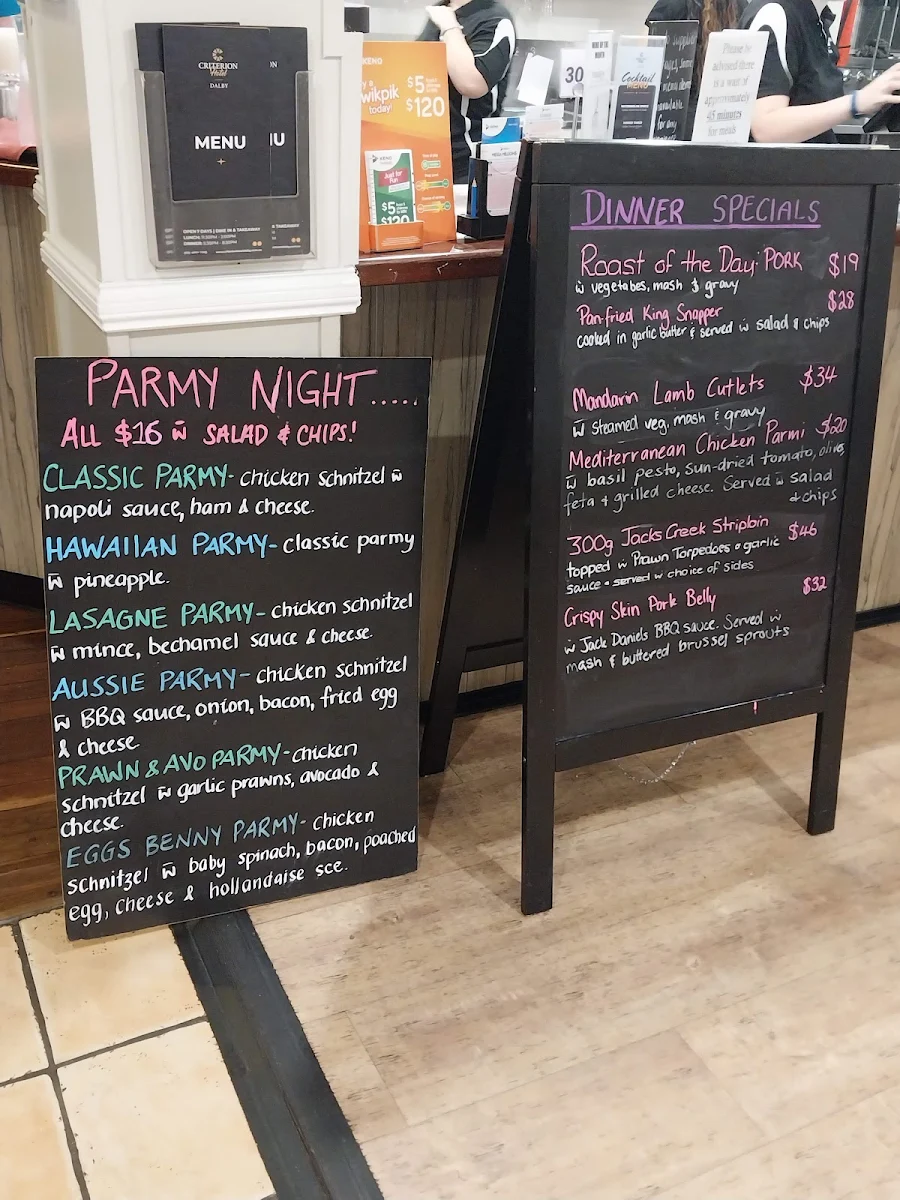 CRITERION
Hotel
DALBY
MENU
OPEN 7 DAYS | DINE IN & TAKEAWAY
NU
KENO
kwikpik
today!
$5
$120
KENO
Just for
Fun
$5
$120
30
Cocktail
MENU
Please be
advised there
is a wait of
approximately
45 minutes
for meals
PARMY NIGHT.....
ALL $16 w̄ SALAD & CHIPS!
CLASSIC PARMY- chicken schnitzel w̄
napoli sauce, ham & cheese.
HAWAIIAN PARMY- classic parmy
w̄ pineapple.
LASAGNE PARMY- chicken schnitzel
w̄ mince, bechamel sauce & cheese.
AUSSIE PARMY- chicken schnitzel
w̄ BBQ sauce, onion, bacon, fried egg
& cheese
PRAWN & AVO PARMY-chicken
schnitzel w̄ garlic prawns, avocado &
cheese.
EGGS BENNY PARMY- chicken
schnitzel w̄ baby spinach, bacon, poached
egg, cheese & hollandaise sce.
DINNER SPECIALS
Roast of the Day: PORK $19
w̄ vegetabes, mash & gravy
Pan-fried King Snapper $28
cooked in garlic butter & served w̄ salad & chips
Mandarin Lamb Cutlets $34
w̄ steamed veg, mash & gravy
Mediterranean Chicken Parmi $20
w̄ basil pesto, sun-dried tomato, olives,
feta & grilled cheese. Served w̄ salad
& chips
300g Jacks Creek Striploin $46
topped w̄ Prawn Torpedoes & garlic
sauce & served w̄ choice of sides
Crispy Skin Pork Belly $32
w̄ Jack Daniels BBQ sauce. Served w̄
mash & buttered brussel sprouts